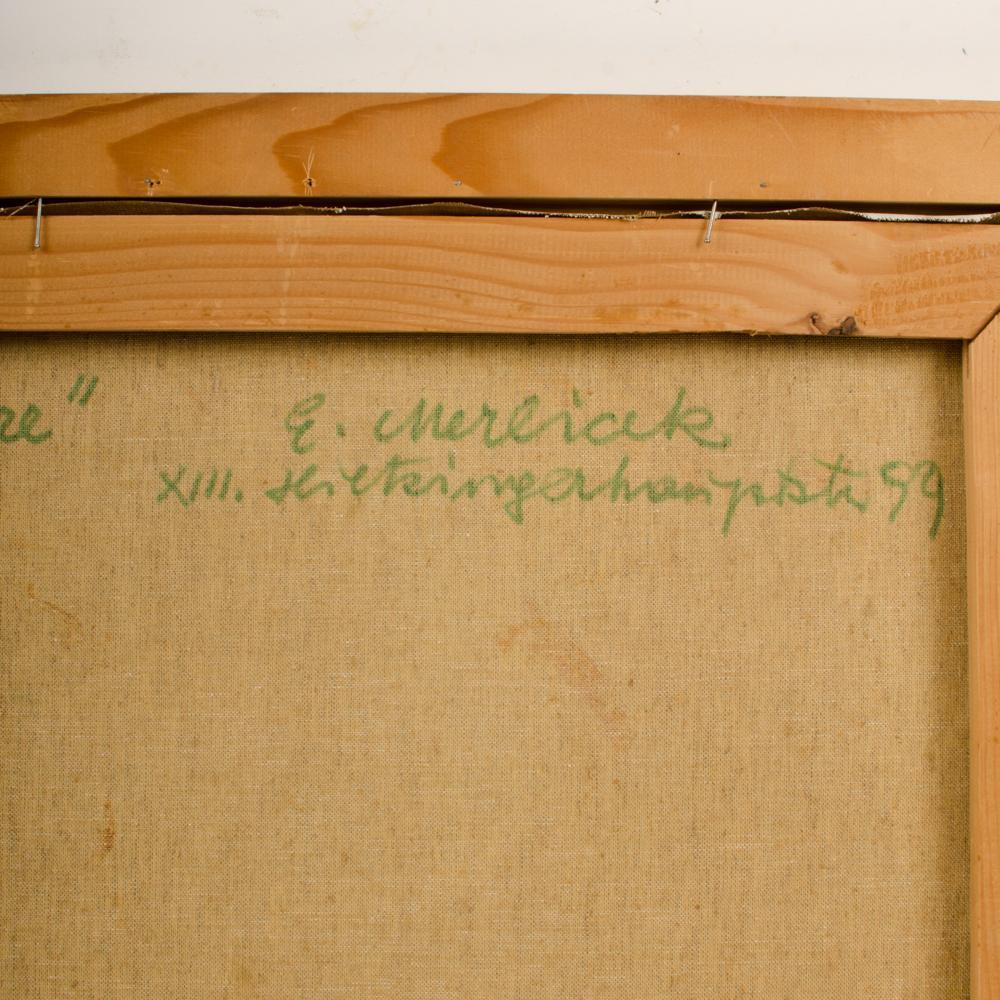 re" E. Merlicek
XIII. Hietzingerhauptstr 99